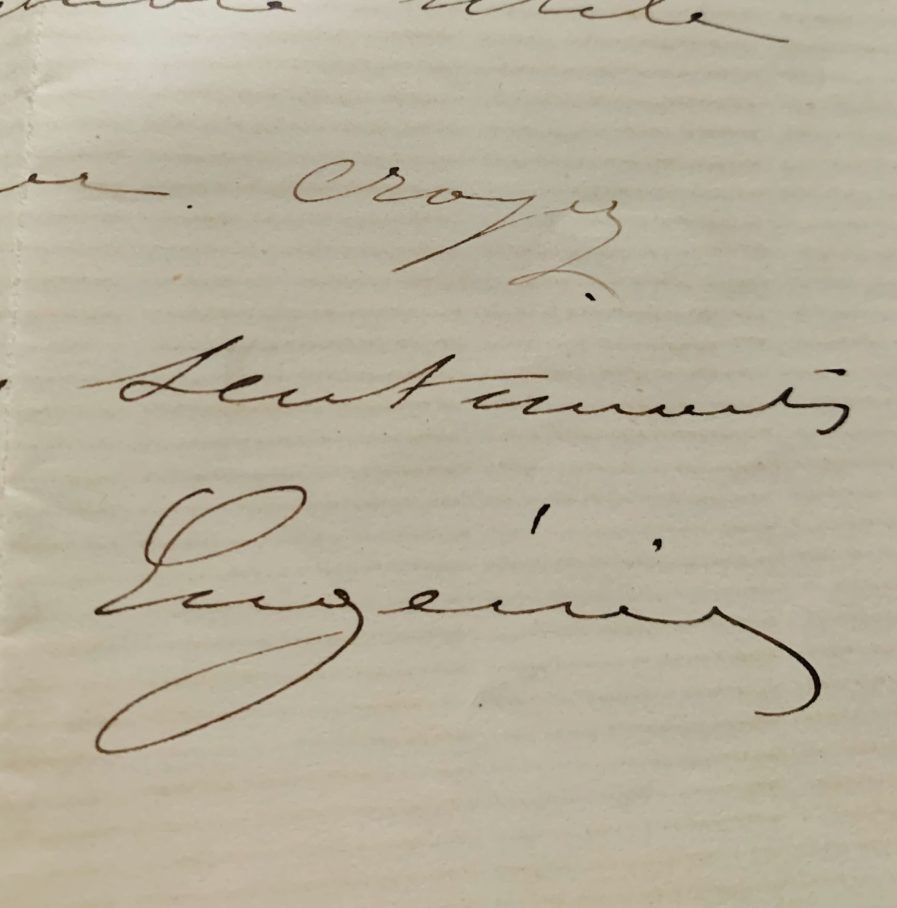 utile
croyez
sentiments
Eugénie